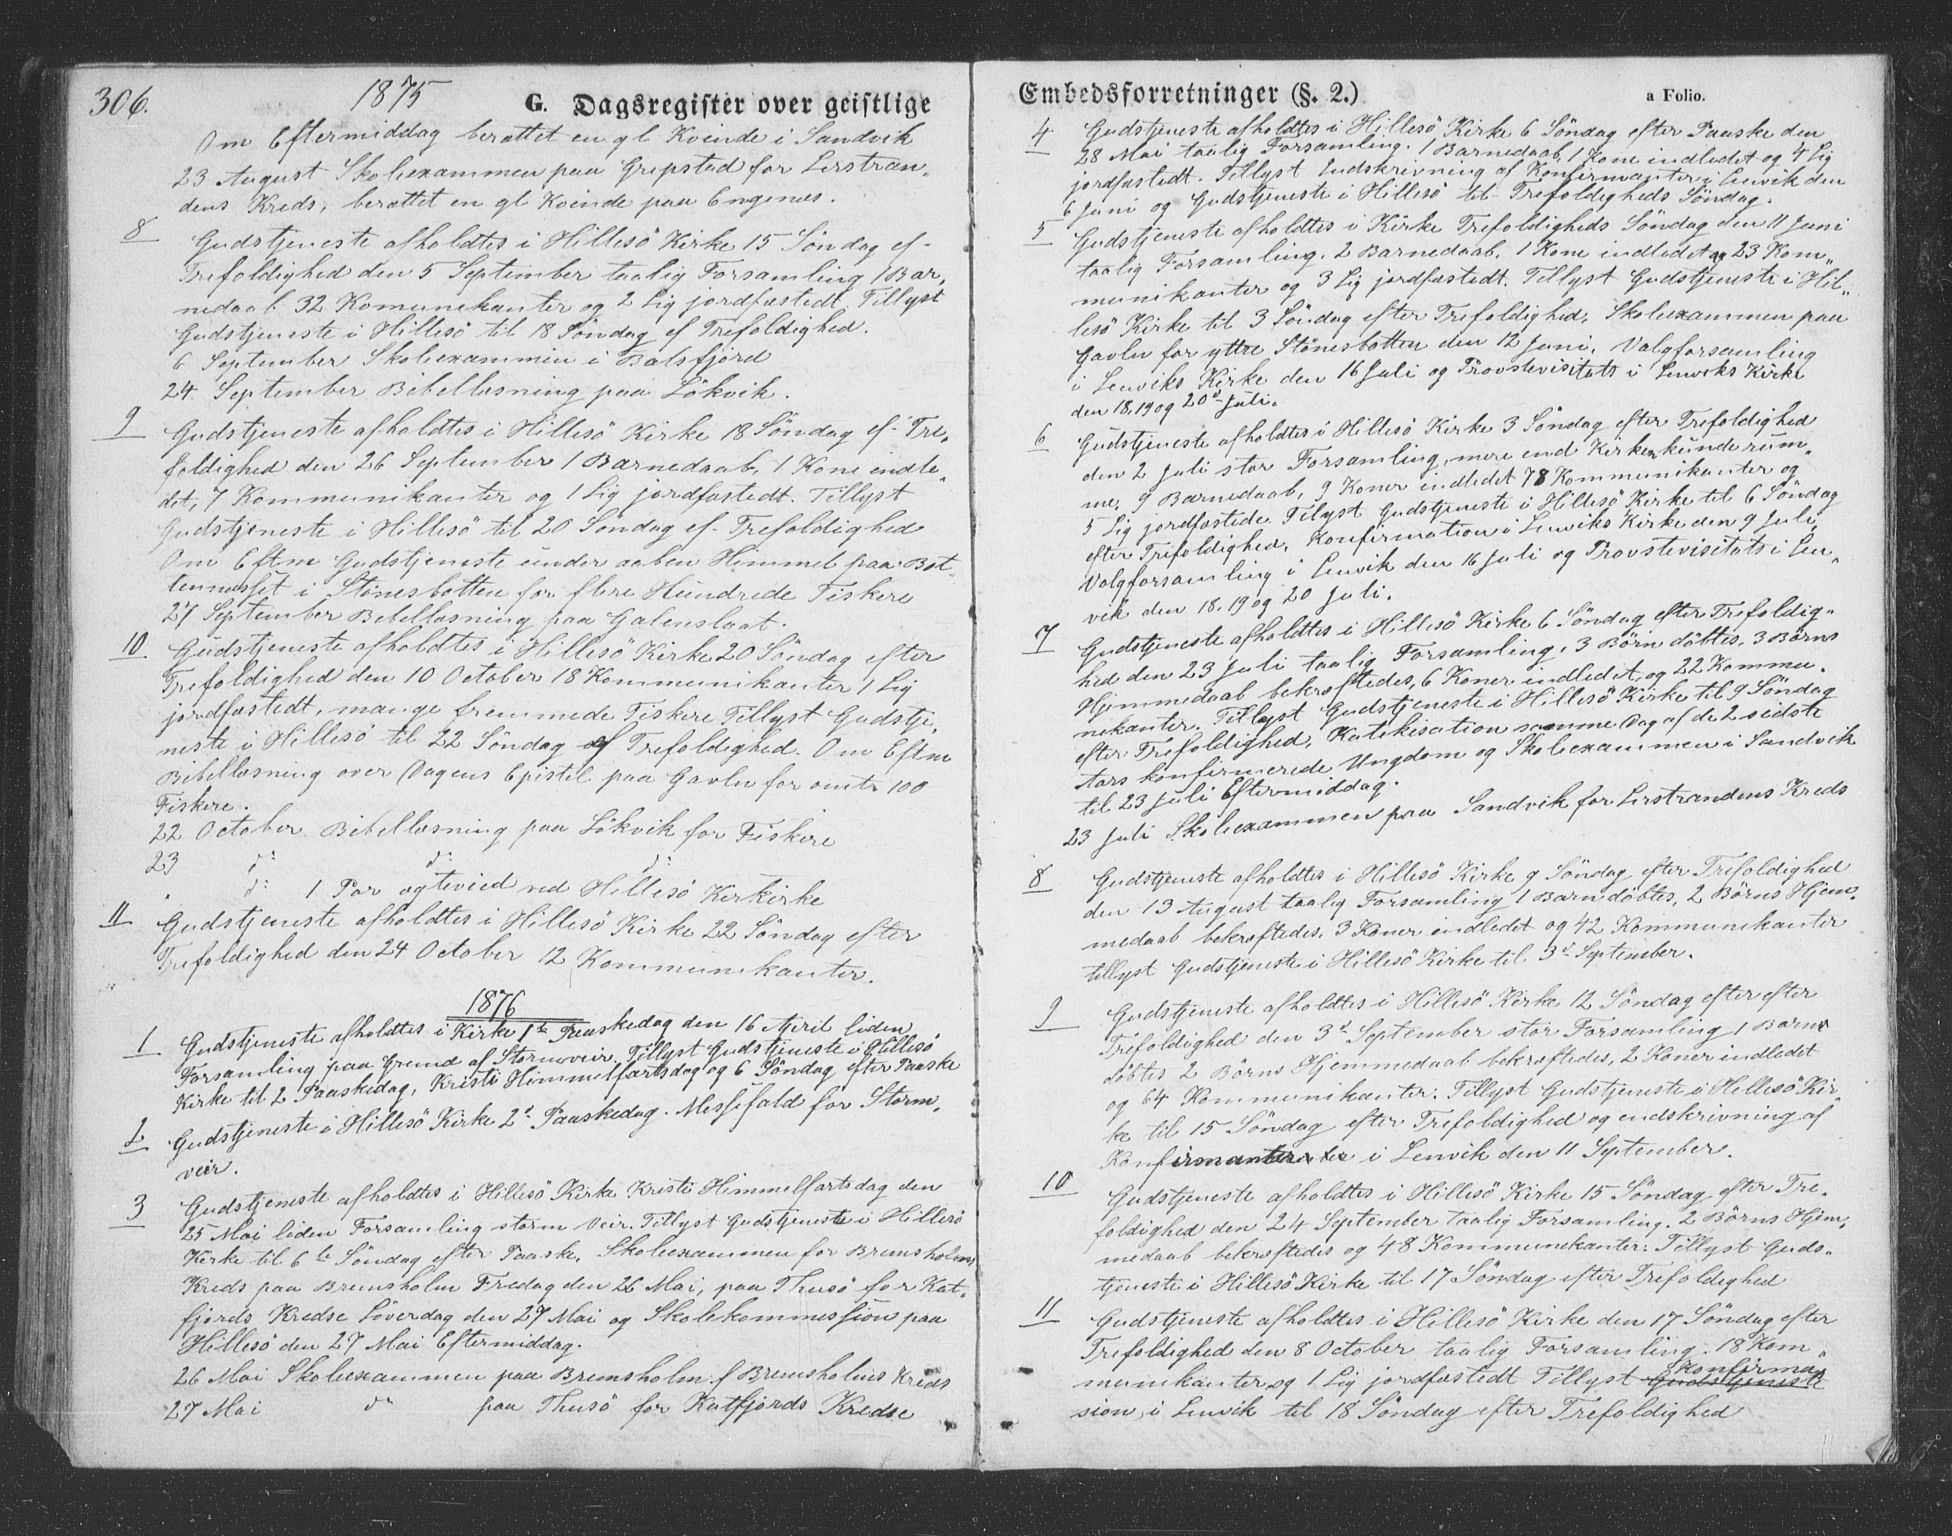 306.
1875
G. Dagsregister over geistlige
Om Eftermiddag berettet en gl Kvinde i Sandvik
23 August Skoleexammen paa Grepstad for Lerstran„
dens Kreds, berettet en gl Kvinde paa Engenes.
8 Gudstjeneste afholdtes i Hillesö Kirke 15 Söndag ef-
Trefoldighed den 5 September taalig Forsamling 1 Bar„
nedaab 32 Komunekanter og 2 Lig jordfæstedt. Tillyst
Gudstjeneste i Hillesö til 18 Söndag ef Trefoldighed.
6 September Skoleexammen i Balsfjord
24. September Bibellæsning paa Lökvik.
9 Gudstjeneste afholdtes i Hillesö Kirke 18 Söndag ef- Tre„
foldighed den 26 September 1 Barnedaab, 1 Kone indle„
det, 7 Kommunikanter og 1 Lig jordfæstedt. Tillyst
Gudstjeneste i Hillesö til 20 Söndag ef- Trefoldighed
Om Eftm Gudstjeneste under aaben Himmel paa Bot„
tennesset i Stönesbotten for flere Hundrede Fiskere
27 September Bebellæsning paa Galenslaat.
10 Gudstjeneste afholdtes i Hillesö Kirke 20 Söndag efter
Trefoldighed den 10 October 18 Kommunikanter 1 Lig
jordfæstedt, mange fremmede Fiskere Tillyst Gudstje„
neste i Hillesö til 22 Söndag ef Trefoldighed. Om Eftm
Bibellæsning over Dagens Epistel paa Gavlen for omtr 100
Fiskere.
22 October Bibellæsning paa Lökvik for Fiskere
23 d: d: d:
„ d: 1 Par ægteviet ved Hillesö Kirkirke
11 Gudstjeneste afholdtes i Hillesö Kirke 22 Söndag efter
Trefoldighed den 24 October 12 Kommunikanter.
1876
1 Gudstjeneste afholdtes i Kirke 1te Paaskedag den 16 April liden
Forsamling paa Grund af Stormveir. Tillyst Gudstjeneste i Hillesö
Kirke til 2 Paaskedag, Kristi Himmelfartsdag og 6 Söndag efter Paaske
2 Gudstjeneste i Hillesö Kirke 2d Paaskedag. Messefald for Storm„
veir.
3 Gudstjeneste afholdtes i Hillesö Kirke Kristi Himmelfartsdag den
25 Mai liden Forsamling storm Veir. Tillyst Gudstjeneste i Hillesö
Kirke til 6te Söndag efter Paaske, Skoleexammen for Bremsholm
Kreds paa Bremsholm Fredag den 26 Mai, paa Thusö for Kat„
fjords Kredse Löverdag den 27 Mai og Skolekommession paa
Hillesö den 27 Mai Eftermiddag.
26 Mai Skoleexammen paa Bremsholm f Bremsholms Kreds
27 Mai do paa Thusö for Katfjords Kredse
Embedsforretninger (§. 2.)
a Folio.
4 Gudstjeneste afholdtes i Hillesö Kirke 6 Söndag efter Paaske den
28 Mai taalig Forsamling. 1 Barnedaab, 1 Kone indledet og 4 Lig
jordfæstedt. Tillyst Indskrivning af Konfirmanter i Lenvik den
6 Juni og Gudstjeneste i Hillesö til Trefoldigheds Söndag.
5 Gudstjeneste afholdtes i Kirke Trefoldigheds Söndag den 11 Juni
taalig Forsamling. 2 Barnedaab, 1 Kone indledet og 23 Kom„
munikanter og 3 Lig jordfæstedt. Tillyst Gudstjeneste i Hil„
lesö Kirke til 3 Söndag efter Trefoldighed, Skoleexammen paa
Gavlen for yttre Stönesbotten den 12 Juni, Valgforsamling
i Lenviks Kirke den 16 Juli og Provstevisitats i Lenviks Kirke
den 18, 19 og 20de Juli.
6 Gudstjeneste afholdtes i Hillesö Kirke 3 Söndag efter Trefoldighed
den 2 Juli stor Forsamling, mere end Kirken kunde rum„
me, 9 Barnedaab, 9 Koner indledet 78 Kommunikanter og
5 Lig jordfæstede. Tilyst Gudstjeneste i Hillesö Kirke til 6 Söndag
efter Trefoldighed, Konfirmation i Lenviks Kirke den 9 Juli,
Valgforsamling i Lenvik den 16 Juli og Provstevisitats i Len„
vik den 18, 19 og 20 Juli.
7 Gudstjeneste afholdtes i Hillesö Kirke 6 Söndag efter Trefoldig„
hed den 23 Juli taalig Forsamling, 3 Börn döbtes, 3 Börns
Hjemmedaab bekræftedes, 6 Koner indledet, og 22 Kommu„
nekanter. Tillyst Gudstjeneste i Hillesö Kirke til 9 Söndag
efter Trefoldighed, Katekisation samme Dag af de 2 sidste
Aars konfirmerede Ungdom og Skoleexammen i Sandvik
til 23 Juli Eftermiddag.
23 Juli Skoleexammen paa Sandvik for Lerstrandens Kreds
8 Gudstjeneste afholdtes i Hillesö Kirke 9 Söndag efter Trefoldighed
den 13 August taalig Forsamling 1 Barn döbtes, 2 Börns Hjem„
medaab bekræftedes. 3 Koner indledet og 42 Kommunekanter
tillyst Gudstjeneste i Hillesö Kirke til 3d September.
9 Gudstjeneste afholdtes i Hillesö Kirke 12 Söndag efter efter
Trefoldighed den 3d September stor Forsamling 1 Barn
döbtes 2 Börns Hjemmedaab bekræftedes, 2 Koner indledet
og 64 Kommunikanter. Tillyst Gudstjeneste i Hillesö Kir„
ke til 15 Söndag efter Trefoldighed og endskrivning af
Konfirmanter i Lenvik den 11 September.
10 Gudstjeneste afholdtes i Hillesö Kirke 15 Söndag efter Tre„
foldighed den 24 September taalig Forsamling. 2 Börns Hjem„
medaab bekræftedes og 48 Kommunekanter: Tillyst Guds„
tjeneste i Hillesö Kirke til 17 Söndag efter Trefoldighed
11 Gudstjeneste afholdtes i Hillesö Kirke den 17 Söndag efter
Trefoldighed den 8 October taalig Forsamling. 18 Kom„
munikanter og 1 Lig jordfæstedt Tillyst Gudstjeneste Konfirma
sion, i Lenvik til 18 Söndag efter Trefoldighed